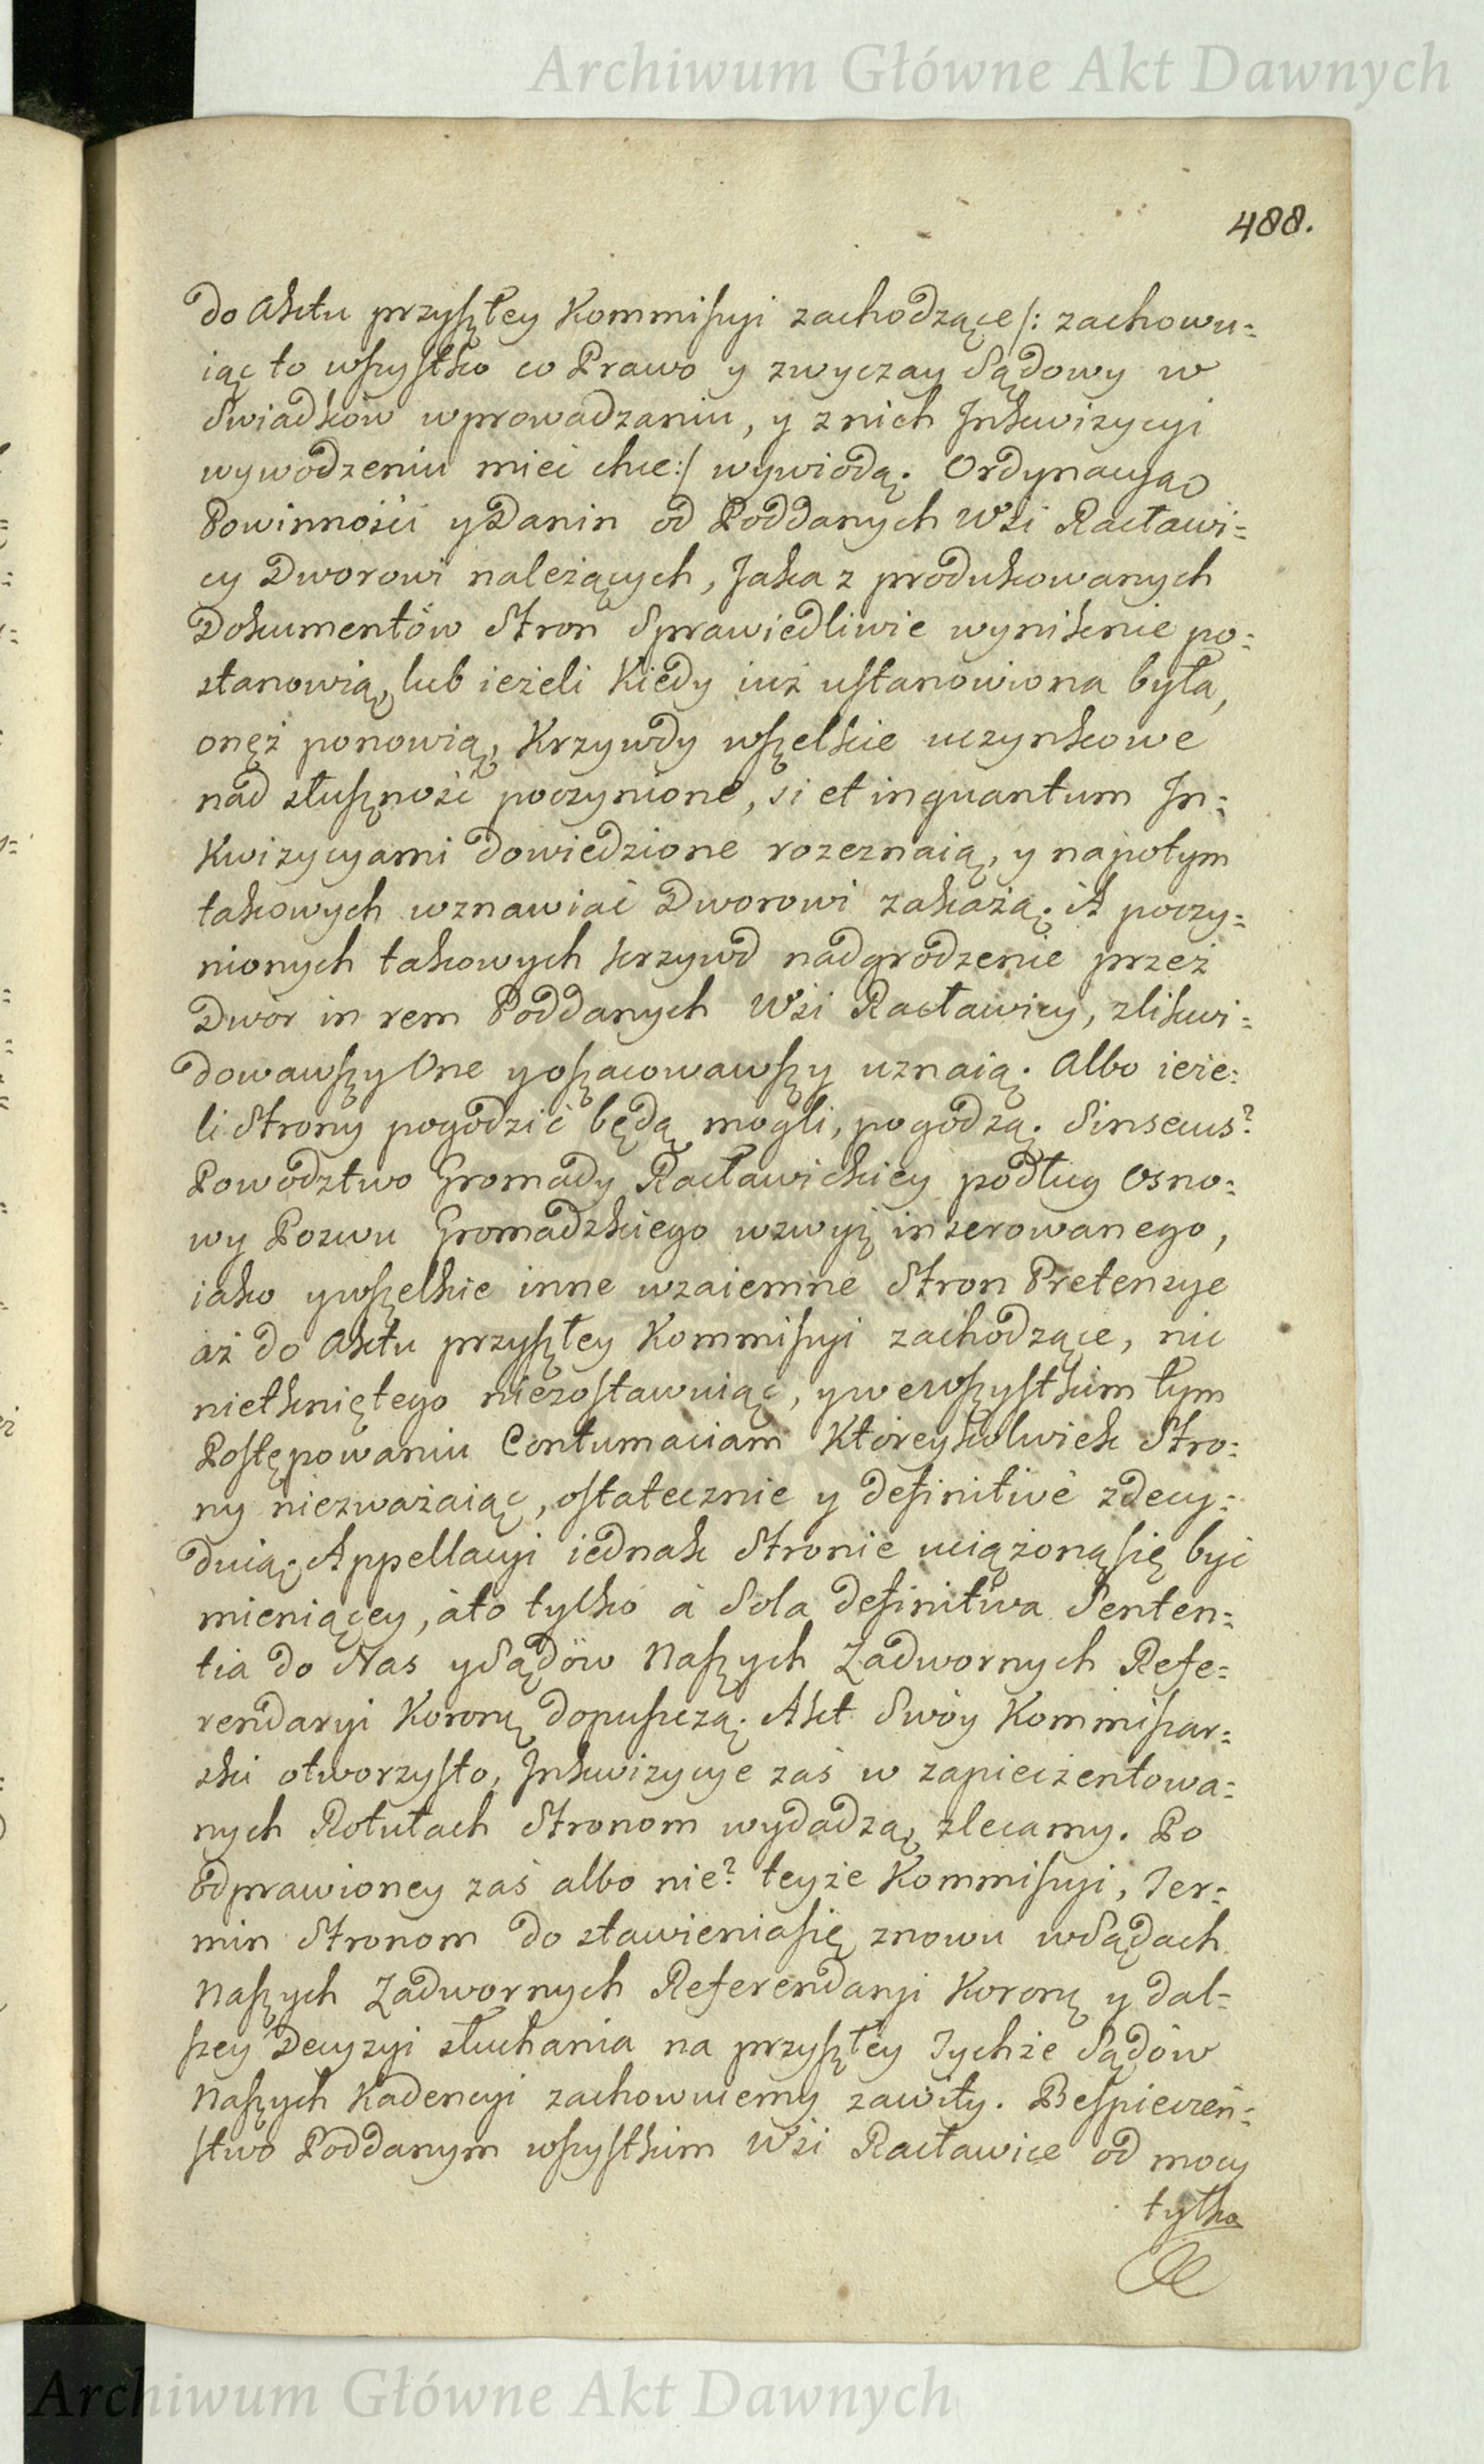 Archiwum Główne Akt Dawnych
488.
do Aktu przyszłey Kommissyi zachodzące /: zachowu=
iąc to wszystko co Prawo y zwyczay Sądowy w
Swiadków wprowadzaniu, y z nich Inkwizycyi
wywodzeniu mieć chce :/ wywiodą. Ordynacyą
Powinności y Danin od Poddanych Wsi Racławi=
cy Dworowi należących, Jaka z produkowanych
Dokumentów Stron Sprawiedliwie wyniknie po=
stanowią, lub ieżeli Kiedy iuż ustanowiona była,
onęż ponowią, Krzywdy wszelkie uczynkowe
nad słuszność poczynione, si et inquantum In=
kwizycyami dowiedzione rozeznaią, y napotym
takowych wznawiać Dworowi zakażą. A poczy=
nionych takowych krzywd nadgrodzenie przez
Dwór in rem Poddanych Wsi Racławicy, zlikwi=
dowawszy One y oszacowawszy uznaią. Albo ieże=
li Strony pogodzić będą mogli, pogodzą. Sinsecus?
Powodztwo Gromady Racławickiey podług Osno=
wy Pozwu Gromadzkiego wzwyż inserowanego,
iako y wszelkie inne wzaiemne Stron Pretensye
aż do Aktu przyszłey Kommissyi zachodzące, nic
nietkniętego niezostawuiąc, y we wszystkim tym
Postępowaniu Contumaciam Któreykolwiek Stro=
ny niezważaiąc, ostatecznie y definitivè zdecy=
duią. Appellacyi iednak Stronie uciążoną się być
mieniącey, á to tylko á Sola definitiva Senten=
tia do Nas y Sądów Naszych Zadwornych Refe=
rendaryi Koronę dopuszczą. Akt Swóy Kommissar=
ski otworzysto, Inkwizycye zaś w zapieczętowa=
nych Rotułach Stronom wydadzą, zlecamy. Po
odprawioney zaś albo nie? teyże Kommissyi, Ter=
min Stronom do stawienia się znowu w Sądach
Naszych Zadwornych Referendaryi Koronę y dal=
szey Decyzyi słuchania na przyszłey Tychże Sądów
Naszych Kadencyi zachowuiemy zawity. Bespieczeń=
stwo Poddanym wszystkim Wsi Racławice od mocy
tylko
Archiwum Główne Akt Dawnych